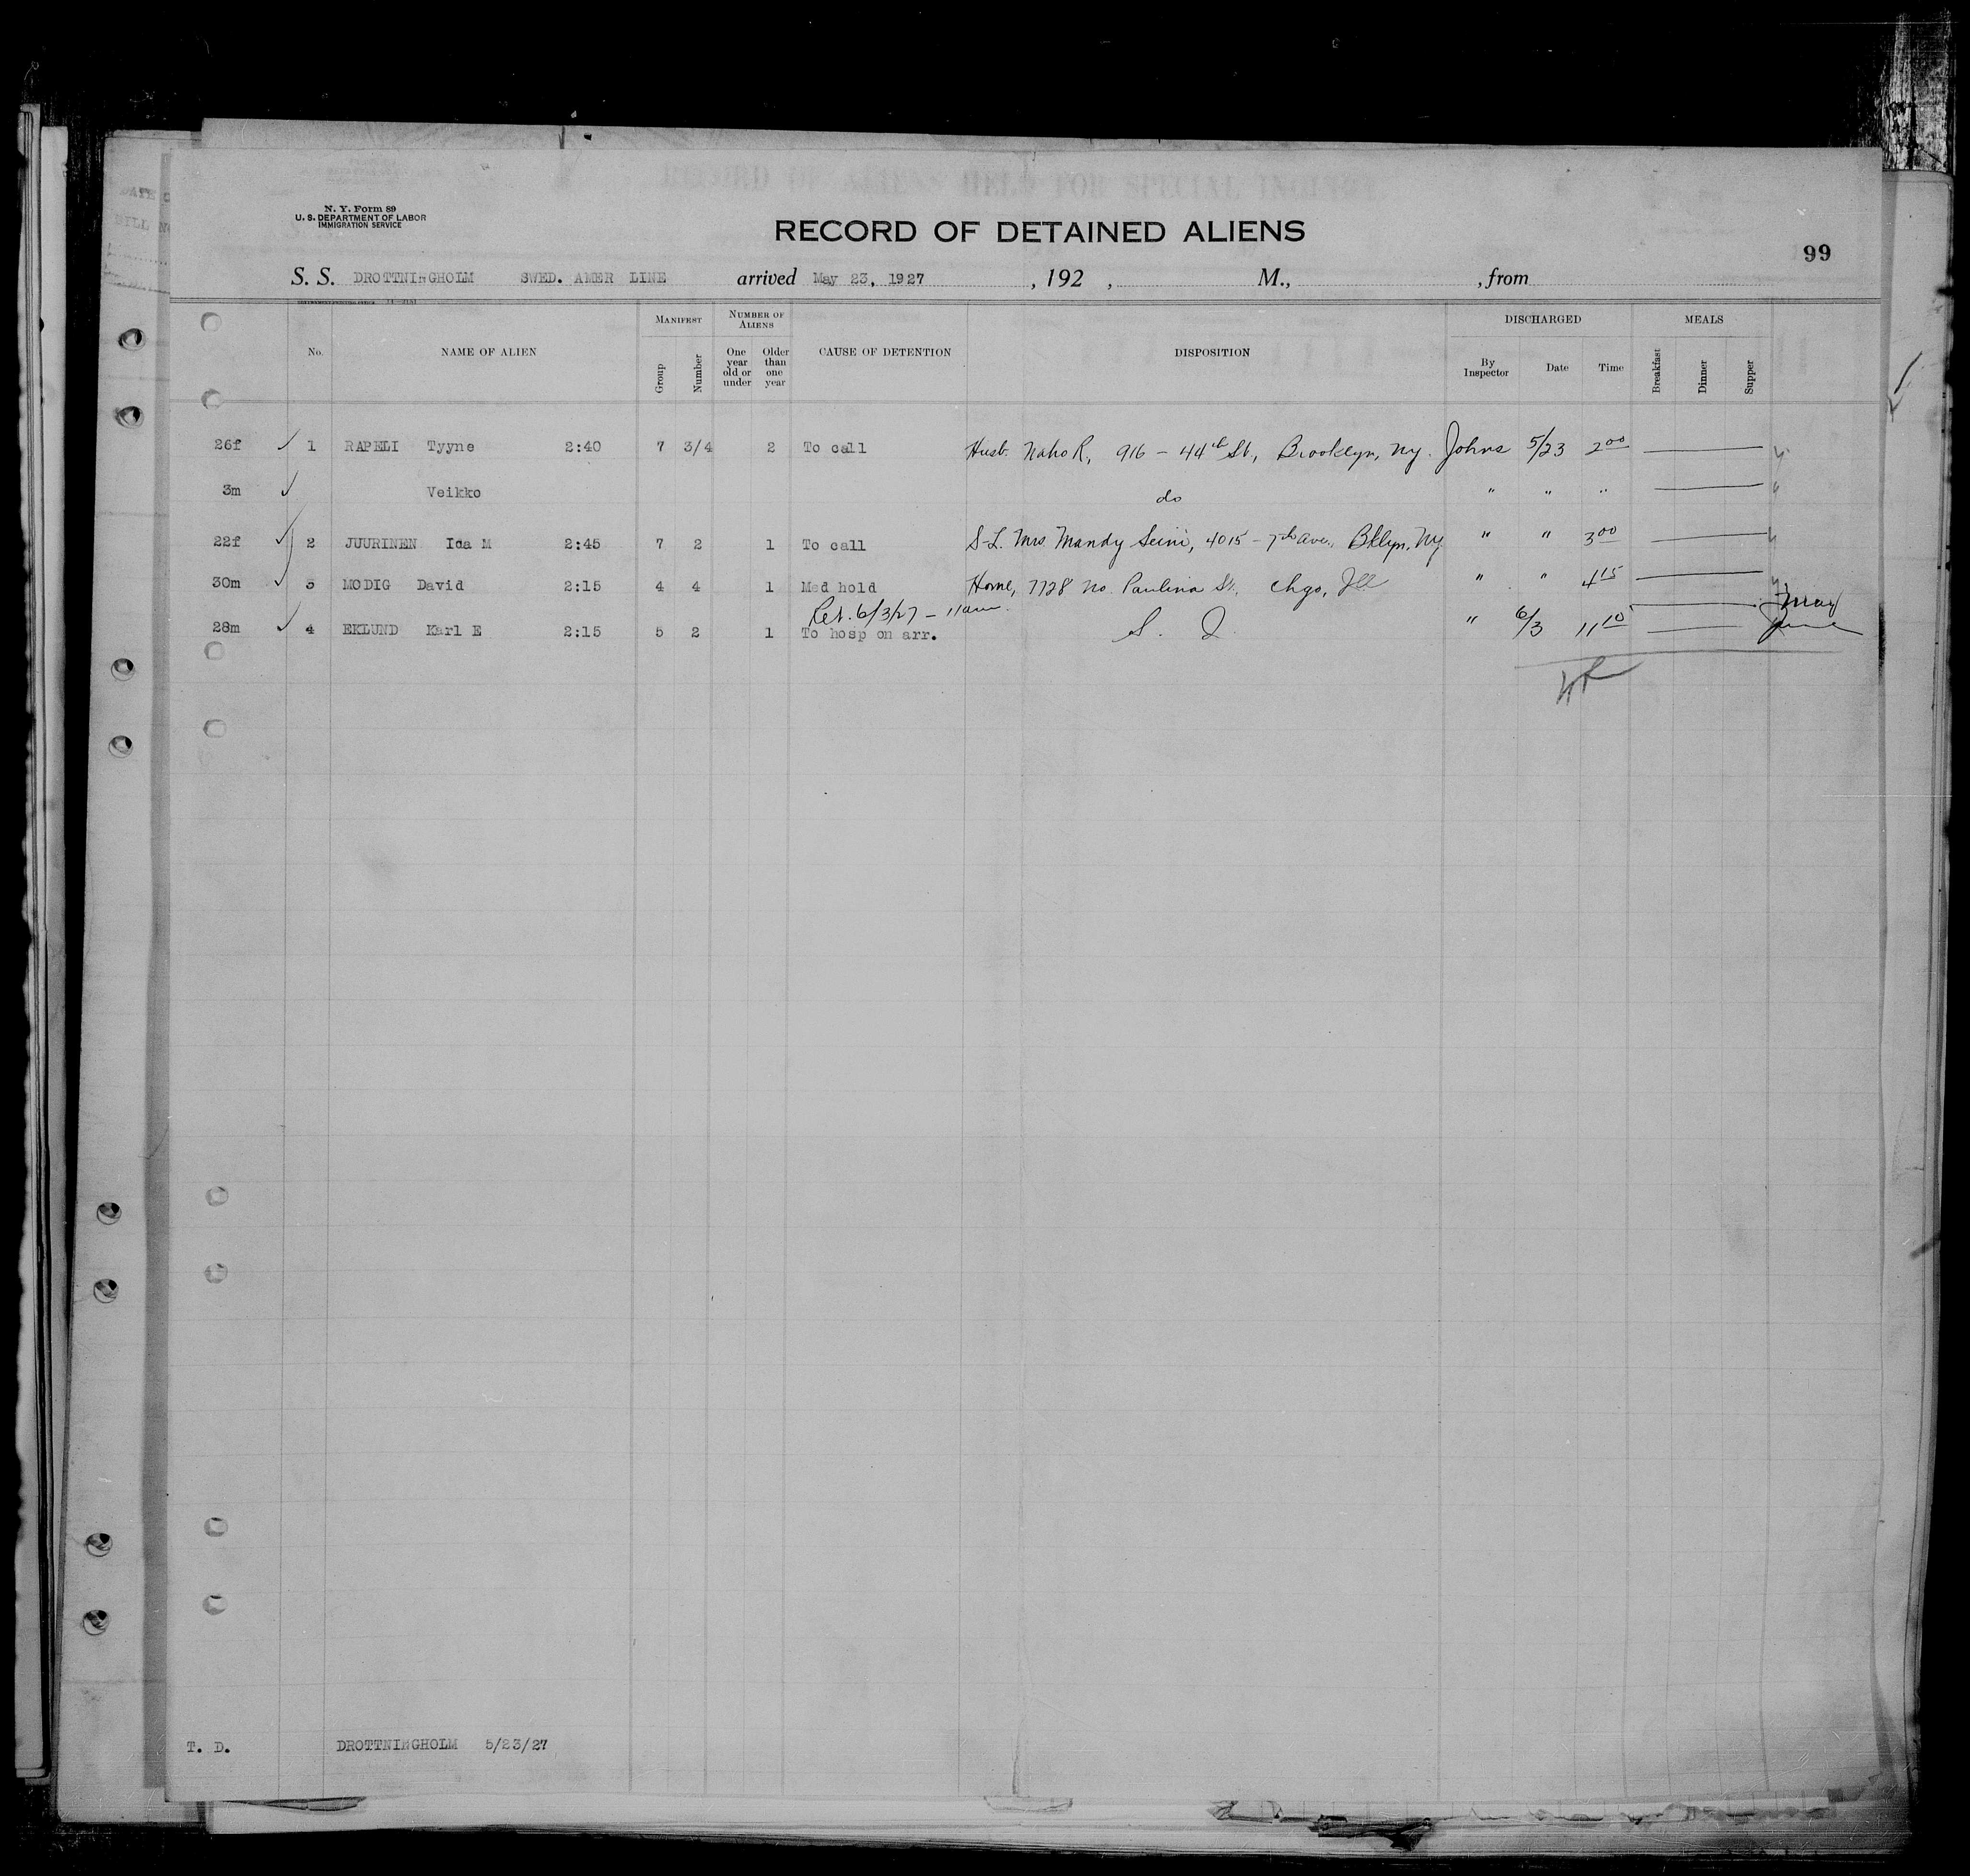 N. Y. Form 89
U. S. DEPARTMENT OF LABOR
IMMIGRATION SERVICE
RECORD OF DETAINED ALIENS
99
S. S. DROTTNINGHOLM SWED. AMER LINE arrived May 23, 1927 , 192 , M., , from
MANIFEST NUMBER OF ALIENS DISCHARGED MEALS
No. NAME OF ALIEN Group Number One year old or under Older than one year CAUSE OF DETENTION DISPOSITION By Inspector Date Time Breakfast Dinner Supper
26f 1 RAPELI Tyyne 2:40 7 3/4 2 To call Husb. R, 916 - 44th St, Brooklyn, Ny. Johns 5/23 2 00
3m Veikko do " " "
22f 2 JUURINEN Ida M 2:45 7 2 1 To call S-L. Mrs Mandy 4015 - 7th Ave, Bklyn, Ny. " " 3 00
30m 3 MODIG David 2:15 4 4 1 Med hold Home, 7728 No. Paulina St, Chgo, Ill " " 4 15
Ret. 6/3/27 - 11 am. May
28m 4 EKLUND Karl E 2:15 5 2 1 To hosp on arr. S. I. " 6/3 11 10 June
T. D. DROTTNINGHOLM 5/23/27